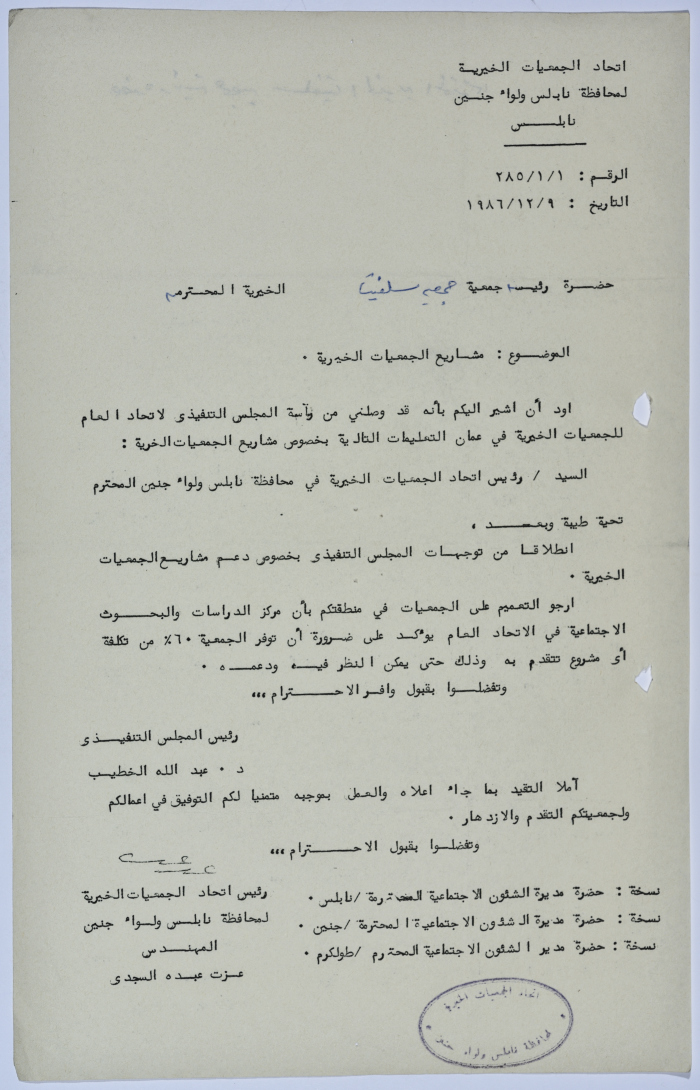 اتحاد الجمعيات الخيرية
لمحافظة نابلس ولواء جنين
نابلس
الرقم : ٢٨٥/١/١
التاريخ : ١٩٨٦/١٢/٩
حضرة رئيسة جمعية جمعيه سلفيت الخيرية المحترمه
الموضوع : مشاريع الجمعيات الخيرية ٠
اود أن اشير اليكم بأنه قد وصلني من رآسة المجلس التنفيذى لاتحاد العام
للجمعيات الخيرية في عمان التعليمات التالية بخصوص مشاريع الجمعيات الخرية :
السيد / رئيس اتحاد الجمعيات الخيرية في محافظة نابلس ولواء جنين المحترم
تحية طيبة وبعد ،
انطلاقا من توجيهات المجلس التنفيذى بخصوص دعم مشاريع الجمعيات
الخيرية ٠
ارجو التعميم على الجمعيات في منطقتكم بأن مركز الدراسات والبحوث
الاجتماعية في الاتحاد العام يؤكد على ضرورة أن توفر الجمعية ٦٠٪ من تكلفة
أى مشروع تتقدم به وذلك حتى يمكن النظر فيه ودعمه ٠
وتفضلوا بقبول وافر الاحترام ،،،
رئيس المجلس التنفيذى
د ٠ عبد الله الخطيب
آملا التقيد بما جاء اعلاه والعمل بموجبه متمنيا لكم التوفيق في اعمالكم
ولجمعيتكم التقدم والازدهار ٠
وتفضلوا بقبول الاحترام ،،،
رئيس اتحاد الجمعيات الخيرية
لمحافظة نابلس ولواء جنين
المهندس
عزت عبده السجدى
نسخة : حضرة مديرة الشئون الاجتماعية المحترمة /نابلس ٠
نسخة : حضرة مديرة الشئون الاجتماعية المحترمة /جنين ٠
نسخة : حضرة مدير الشئون الاجتماعية المحترم /طولكرم ٠
اتحاد الجمعيات الخيرية
لمحافظة نابلس ولواء جنين